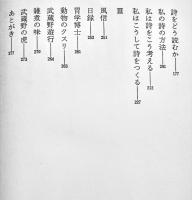 詩をどう読むか 177
私の詩の方法 201
私は詩をこう考える 213
私はこうして詩をつくる 227
Ⅲ
風信 251
日録 253
胃学博士 261
動物のクスリ 265
武蔵野遊行 264
雑煮の味 270
武蔵野の虎 273
あとがき 277